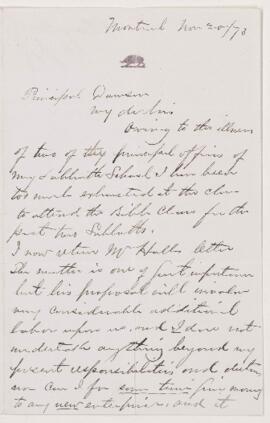 Montreal Nov 20/73
Principal Dawson
My dr Sir
Owing to the illness
of two of the principal officers of
my Sabbath School I have been
too much exhausted at the close
to attend the Bible Class for the
past two Sabbaths.
I now return Mr Halls letter
The matter is one of great importance
but his proposal will involve
very considerable additional
labor upon us, and I dare not
undertake anything beyond my
present responsibilities and duties
nor can I for some time give money
to any new enterprise and it